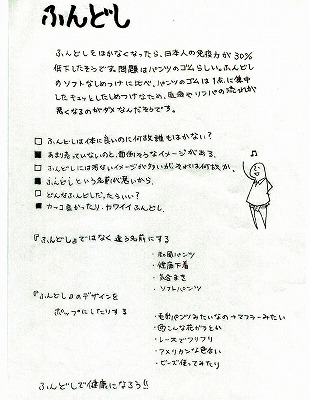 ふんどし
ふんどしをはかなくなったら、日本人の免疫力が30%
低下したそうです。問題はパンツのゴムらしい。ふんどし
のソフトなしめつけに比べ、パンツのゴムは1点に集中
したキュッとしたしめつけなため、血液やリンパの流れが
悪くなるのがダメなんだそうです。
□ ふんどしは体に良いのに何故誰もはかない?
■ あまり売っていないのと、面倒そうなイメージがある。
□ ふんどしには汚ないイメージが多いがそれは何故か。
■ ふんどしという名前が悪いから。
□ どんなふんどしだったらいい?
■ カッコ良かったり、カワイイふんどし。
♪
『ふんどし』ではなく違う名前にする
・和風パンツ
・健康下着
・気合まき
・ソフトパンツ
『ふんどし』のデザインを
ポップにしたりする
・毛糸パンツみたいなの→マフラーみたい
・かっこいい
・レースでフリフリ
・アメリカンな色合い
・ビーズ使ってみたり
ふんどしで健康になろう!!